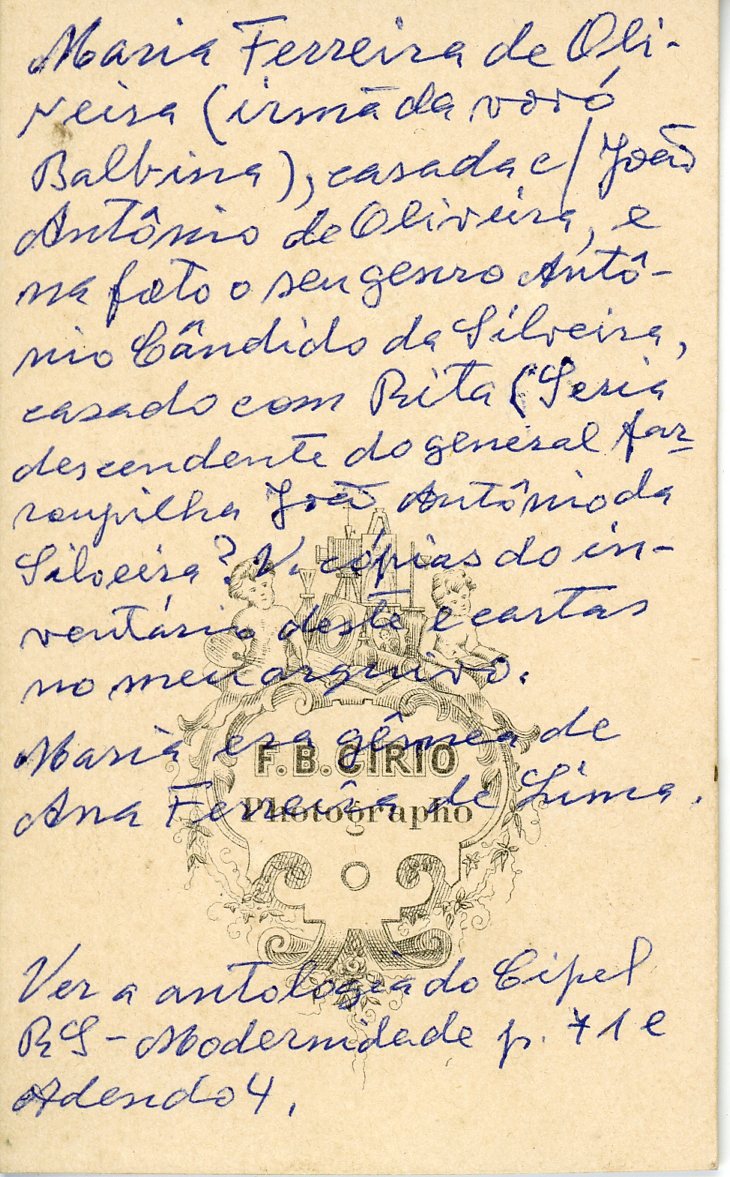 Maria Ferreira de Oli-
veira (irmã da vovó
Balbina), casada c/ João
Antônio de Oliveira, e
na foto o seu genro Antô-
nio Cândido da Silveira,
casado com Rita (Seria
descendente do general far-
roupilha João Antônio da
Silveira? V. cópias do in-
ventário deste e cartas
no meu arquivo.
Maria era gêmea de
F. B. CIRIO
Ana Ferreira de Lima.
Photographo
Ver a antologia do Cipel
RS - Modernidade p. 71 e
Adendo 4.